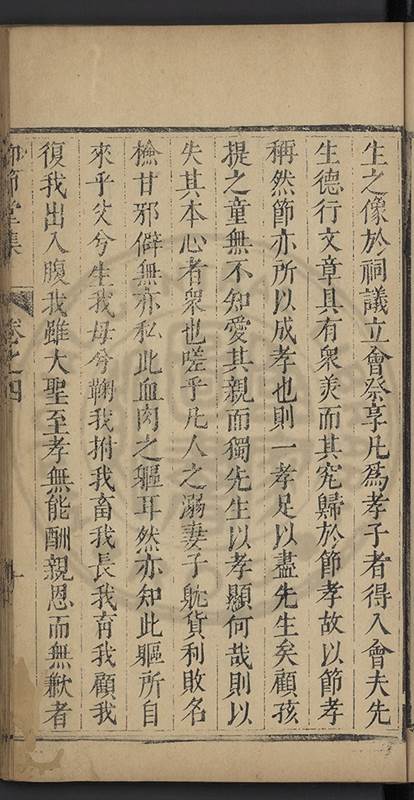 生之像於祠議立會祭享凡為孝子者得入會夫先
生德行文章具有衆美而其究歸於節孝故以節孝
稱然節亦所以成孝也則一孝足以盡先生矣顧孩
提之童無不知愛其親而獨先生以孝顯何哉則以
失其本心者衆也嗟乎凡人之溺妻子躭貨利敗名
檢甘邪僻無亦私此血肉之軀耳然亦知此軀所自
來乎父兮生我母兮鞠我拊我畜我長我育我顧我
復我出入腹我雖大聖至孝無能酬親恩而無歉者
節堂集 卷之四